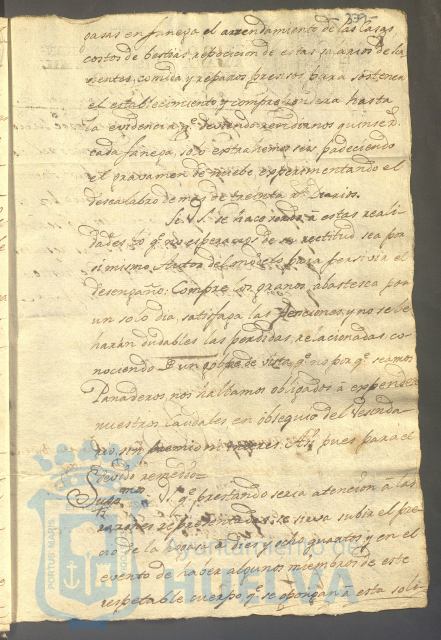 335
casas en fanega el arrendamiento de las casas
costos de bestias reposicion de estas salarios de la
comida y reparos precisos para sostener
el establecimiento y comprension sera hasta
la evidencia q.e deviendo rendirnos quince r.s
cada fanega, solo extrahemos seis padeciendo
el gravamen de nuebe, experimentando el
descalabro de mas de treinta r.s diarios.
Si V.S. se hace sordo à estas reali
dades lo q.e no esperamos de su rectitud sea por
si mismo Autor del para persivir el
desengaño: Compre los granos abastesca por
un solo dia, satisfaga las penciones, y no se le
harán dudables las perdidas relacionadas, co
nociendo de un golpe de vista q.e no por q.e seamos
Panaderos, nos hallamos obligados à expender
nuestros Caudales en obsequio del Vesinda
rio, sin premio ni interes. Asi pues para el
devido remedio =
Sup.mos à V.S. q.e prestando seria atencion à las
razones representadas se sirva subir el pre
cio de la hogasa à dies y ocho quartos y en el
evento de haber algunos miembros de este
respetable cuerpo q.e se opongan à esta soli
PORTUS MARIS
Ayuntamiento de
HUELVA